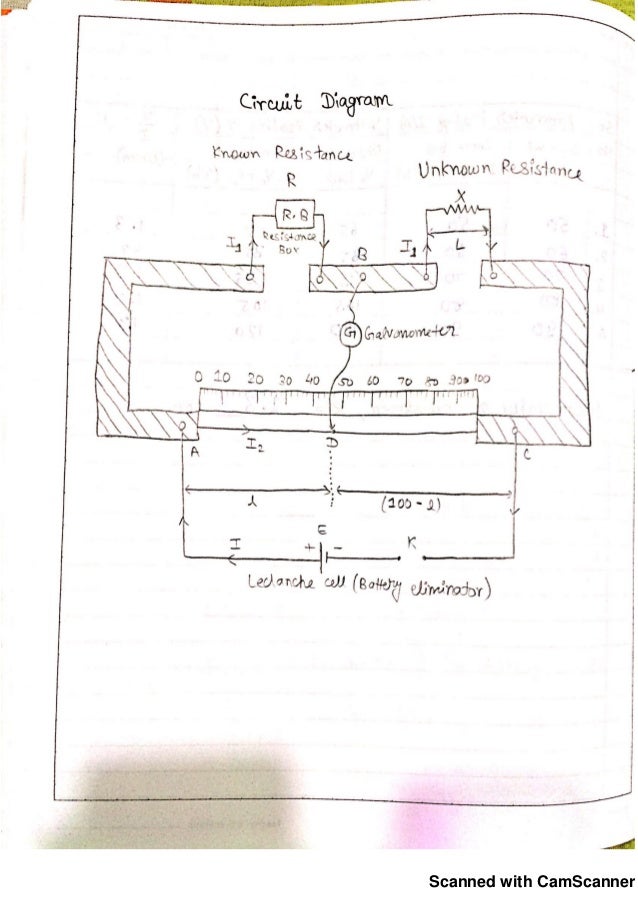 Circuit Diagram
Known Resistance
R
Unknown Resistance
X
R.B
Resistance
Box
I1
B
I1
L
G Galvonometer
0 10 20 30 40 50 60 70 80 100
A
I2
D
C
l
(100-l)
I
E
+
-
K
Leclanche cell (Battery eliminator)
Scanned with CamScanner